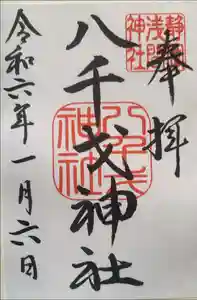 奉拝
静岡
浅間
神社
八千戈神社
八千戈
神社
令和六年一月六日